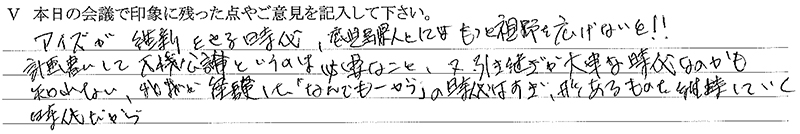 V 本日の会議で印象に残った点やご意見を記入して下さい。
アイズが 維新 とせる時代、鹿児島県人としては もっと視野を広げないと!!
計画書にして 公講というのは 必要なこと、又 引き継ぎが大事な時代なのかも
知れない、 経験した「なんでも一から」の時代はすぎ、形あるものを維持していく
時代だから